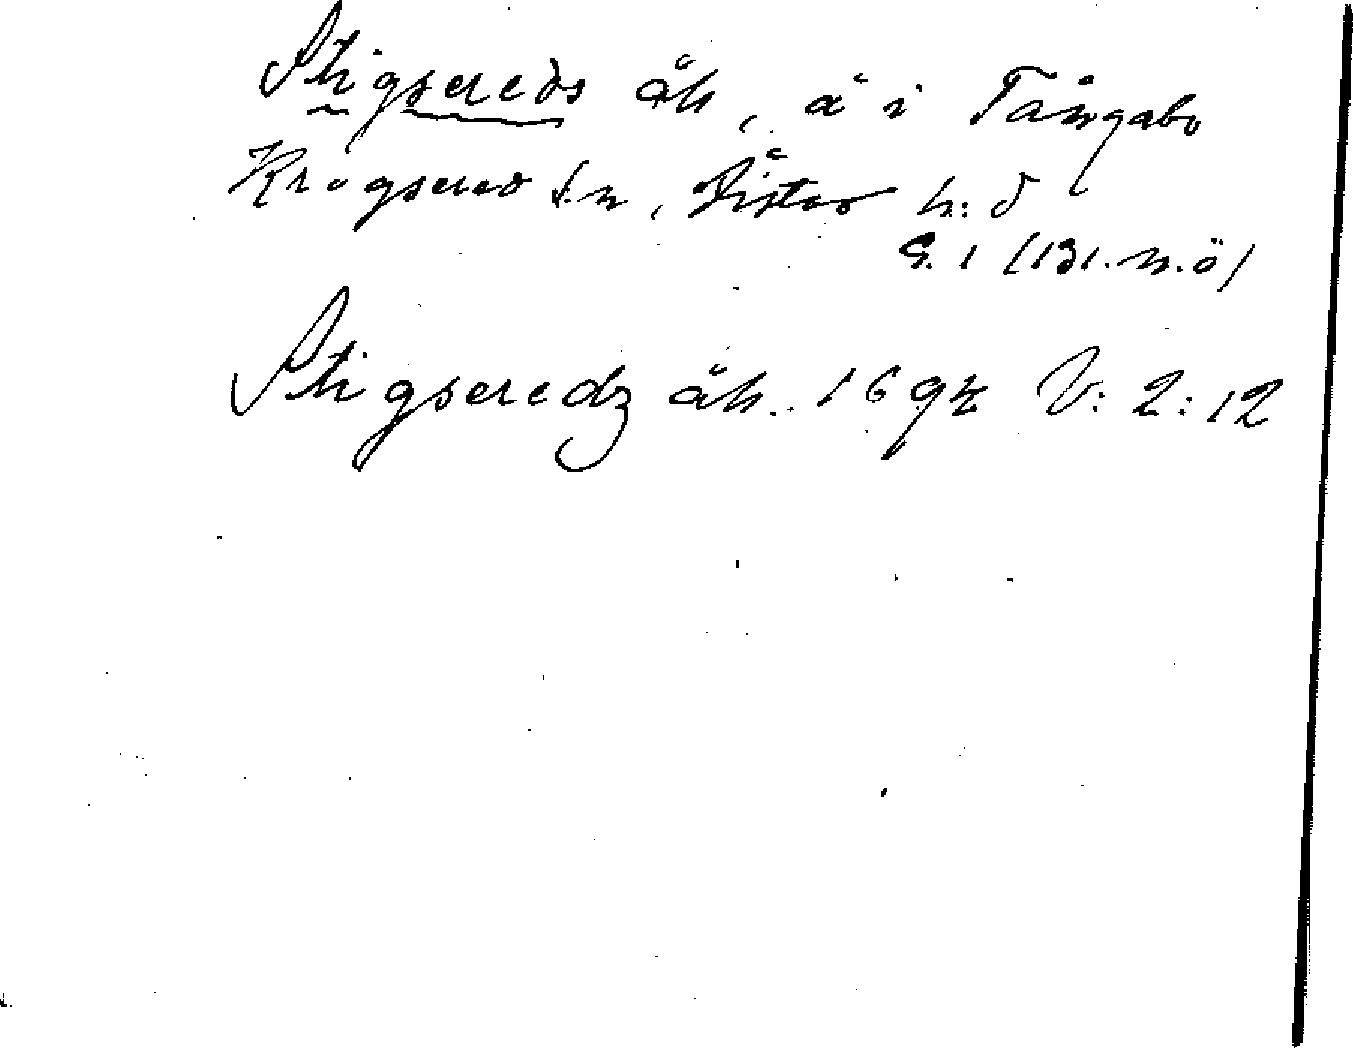 Stigsereds åk, å i Tångabo
Krogsered sn, Årstad h: d
G. 1 (131. n. ö)
Stigseredz åk. 169x V: 2: 12